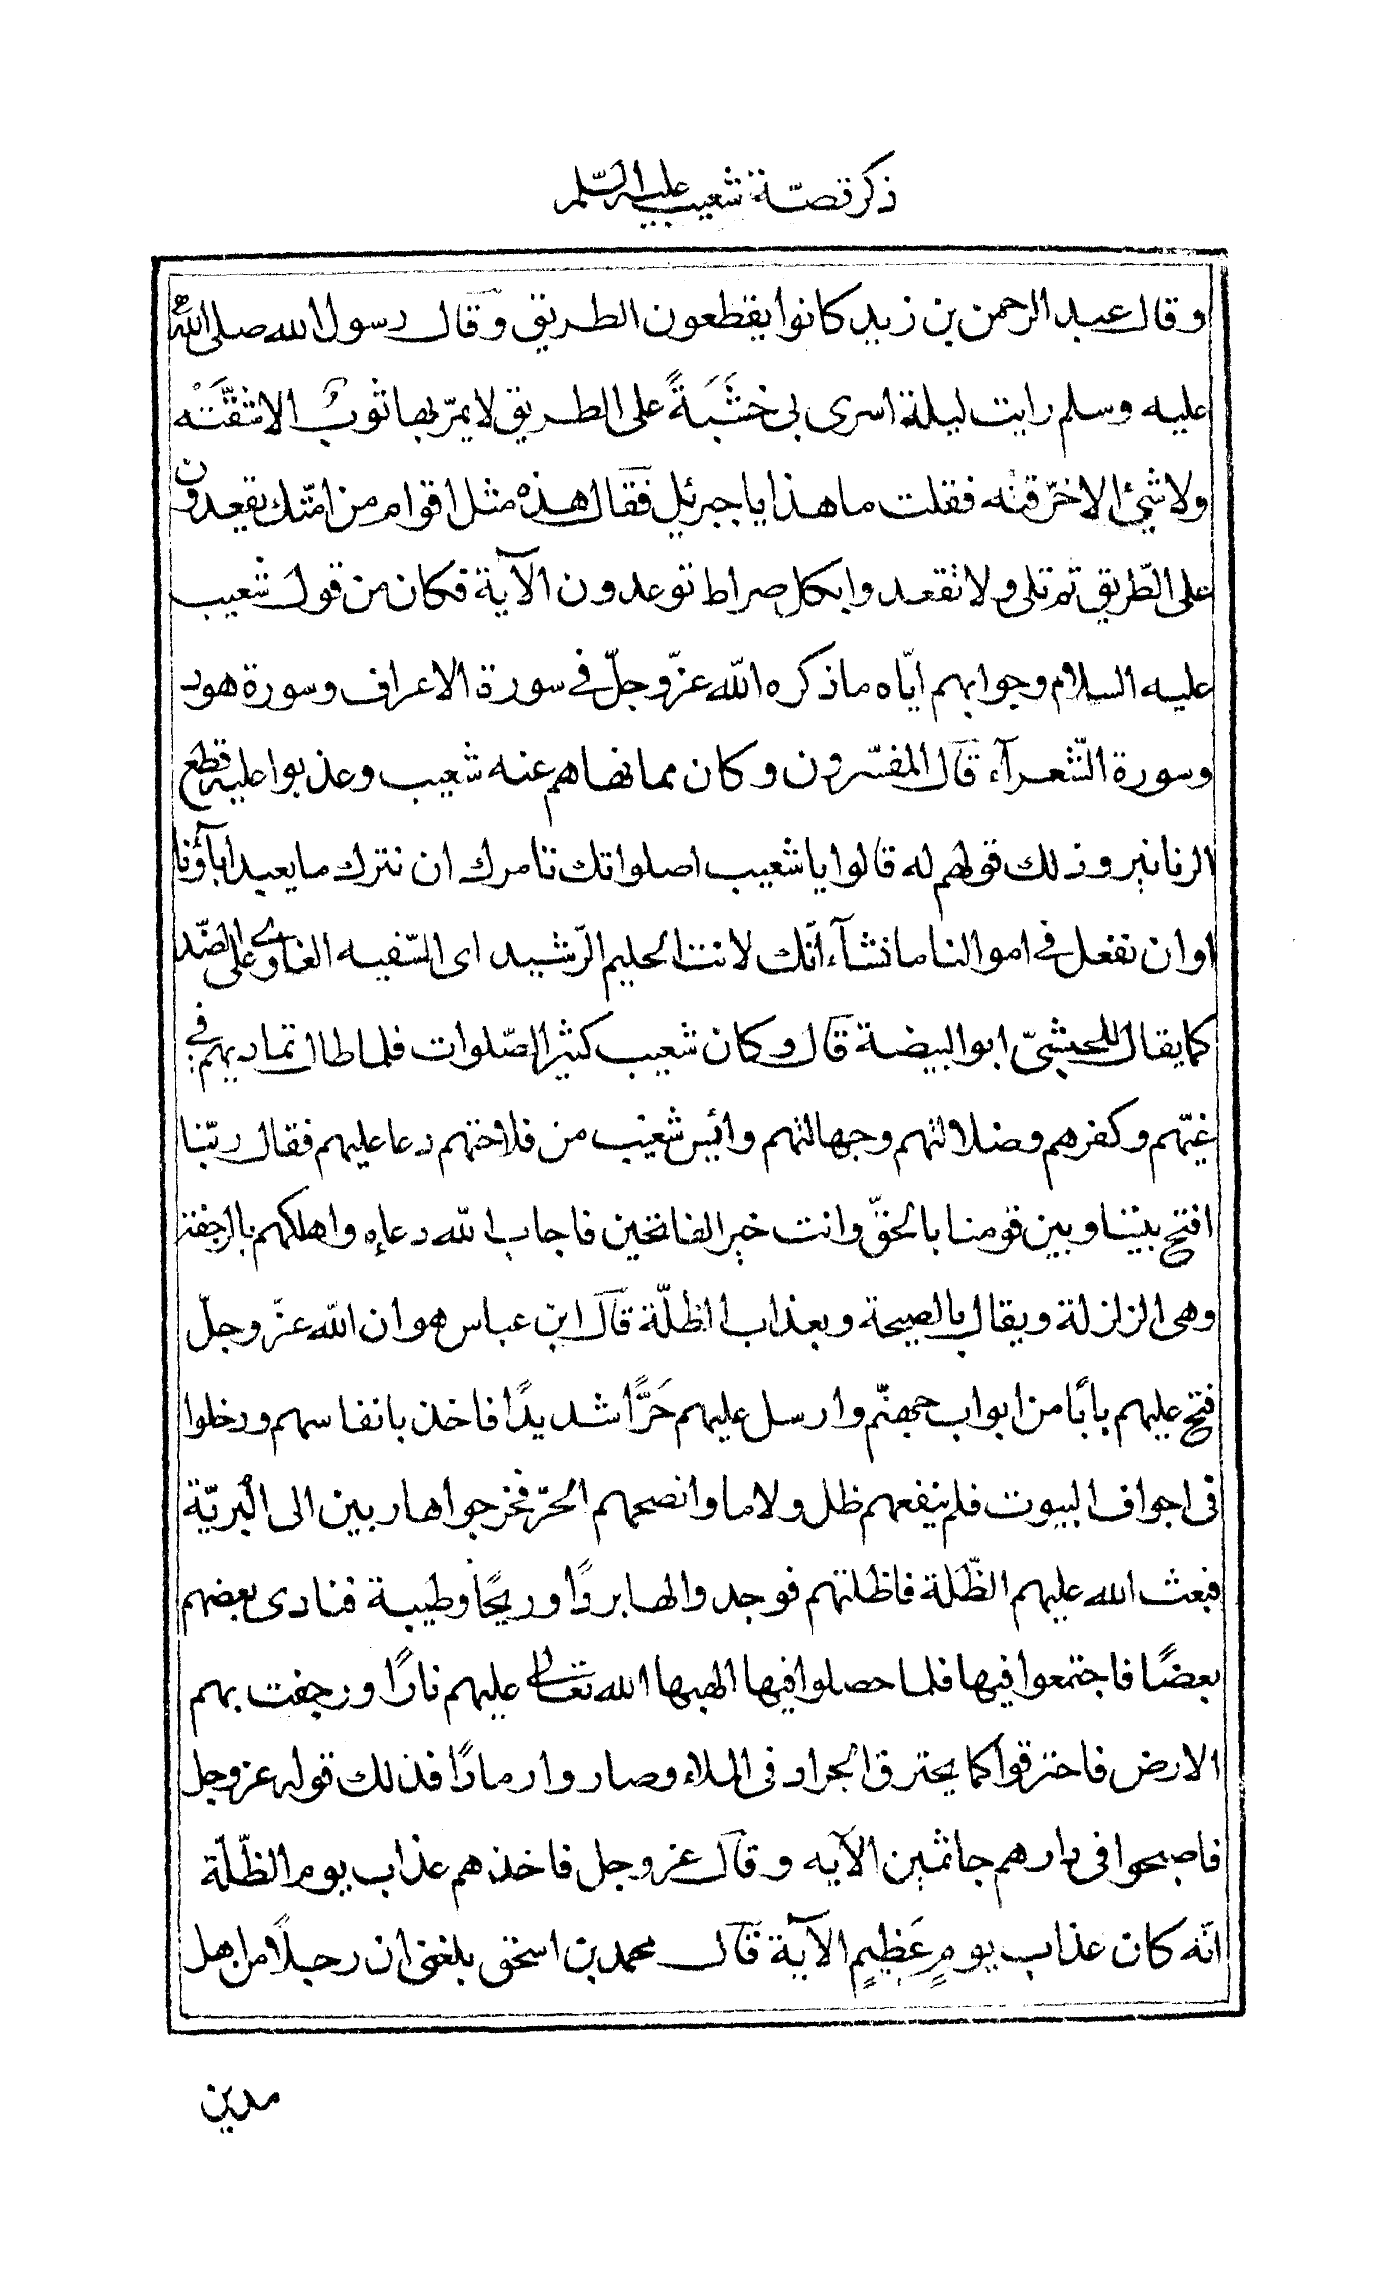 ذكر قصّة شعيب عليه السّلم
وقال عبد الرحمن بن زيد كانوا يقطعون الطريق وقال رسول الله صلى الله
عليه وسلم رايت ليلة اسرى بى خشَبَةً على الطريق لا يمرّ بها ثوبٌ الا شقّته
ولا شيئ الا خرّقته فقلت ما هذا يا جبرئيل فقال هذه مثل اقوام من امّتك يقعدون
على الطّريق ثم تلى ولا تقعدوا بكل صراط توعدون الآية فكان من قول شعيب
عليه السلام وجوابهم ايّاه ما ذكره الله عزّ وجلّ فى سورة الاعراف وسورة هود
وسورة الشّعرآء قال المفسّرون وكان مما نهاهم عنه شعيب وعذبوا عليه قطع
الدنانير وذلك قولهم له قالوا يا شعيب اصلواتك تامرك ان نترك ما يعبد اباؤنا
او ان نفعل فى اموالنا ما نشآء انّك لانت الحليم الرّشيد اى السّفيه الغاوى على الضّد
كما يقال للحبشىّ ابو البيضة قال وكان شعيب كثير الصّلوات فلما طال تماديهم فى
غيّهم وكفرهم وضلالتهم وجهالتهم وائيس شعيب من فلاحتهم دعا عليهم فقال ربّنا
افتح بيننا وبين قومنا بالحقّ وانت خير الفاتحين فاجاب الله دعاءه واهلكهم بالرجفة
وهى الزلزلة ويقال بالصيحة وبعذاب الظلّة قال ابن عباس هو ان الله عزّ وجلّ
فتح عليهم بابًا من ابواب جهنّم وارسل عليهم حَرًّا شديدًا فاخذ بانفاسهم ودخلوا
فى اجواف البيوت فلم ينفعهم ظل ولا ماء وانضجهم الحرّ فخرجوا هاربين الى البريّة
فبعث الله عليهم الظّلة فاظلتهم فوجدوا لها بردًا وريحًا وطيبة فنادى بعضهم
بعضًا فاجتمعوا فيها فلما حصلوا فيها الهبها الله تعالى عليهم نارًا ورجفت بهم
الارض فاحترقوا كما يحترق الجراد فى الملاء وصاروا رمادًا فذلك قوله عز وجل
فاصبحوا فى دارهم جاثمين الآيه وقال عز وجل فاخذهم عذاب يوم الظّلّة
انّه كان عذاب يومٍ عَظيمٍ الآية قال محمد بن اسحق بلغنى ان رجلًا من اهل
مدين